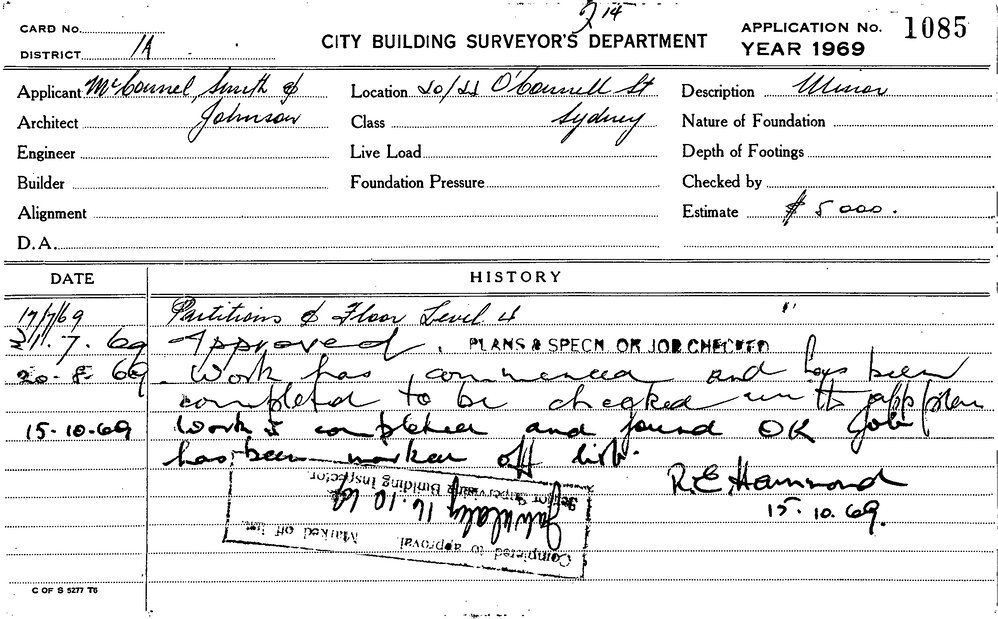 214
CARD No.
APPLICATION No. 1085
DISTRICT 1A
CITY BUILDING SURVEYOR'S DEPARTMENT
YEAR 1969
Applicant McConnel, Smith &
Location 20/22 O'Connell St
Description Minor
Architect Johnson
Class Sydney
Nature of Foundation
Engineer
Live Load
Depth of Footings
Builder
Foundation Pressure
Checked by
Alignment
Estimate $5000.
D.A.
DATE HISTORY
17/7/69 Partitions & Floor Level 4
21.7.69 Approved. PLANS & SPECN. OR JOB CHECKED
20-8-69 Work has commenced and has been
completed to be checked with app plan
15-10-69 Work is completed and found OK Job
has been marked off list.
R.E. Hammond
15.10.69.
Completed to approval. Marked off list.
16.10.69
Senior Supervising Building Inspector.
C OF S 5277 T6